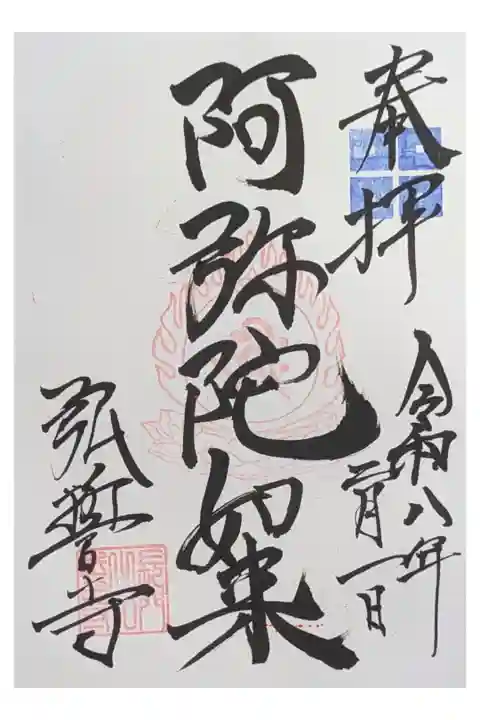 奉拝
令和八年
二月一日
阿弥陀如来
弘誓寺